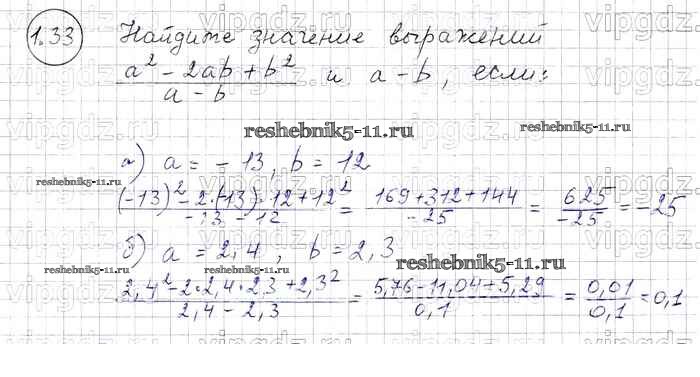 1.33 Найдите значение выражений
(a² - 2ab + b²)/(a - b) и a - b, если:
reshebnik5-11.ru
а) a = -13, b = 12
reshebnik5-11.ru
((-13)² - 2·(-13)·12 + 12²)/(-13 - 12) = (169 + 312 + 144)/(-25) = 625/(-25) = -25
reshebnik5-11.ru
б) a = 2,4, b = 2,3
reshebnik5-11.ru
reshebnik5-11.ru
reshebnik5-11.ru
(2,4² - 2·2,4·2,3 + 2,3²)/(2,4 - 2,3) = (5,76 - 11,04 + 5,29)/0,1 = 0,01/0,1 = 0,1